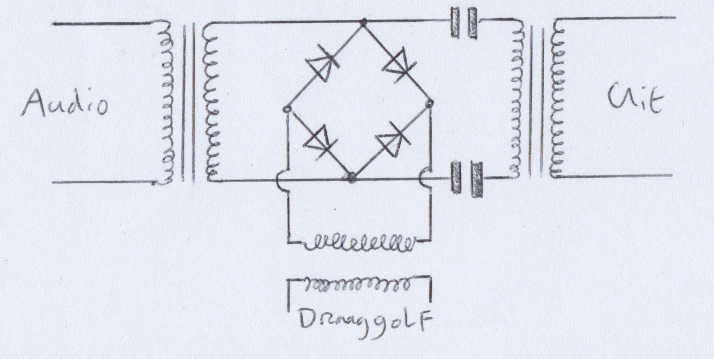 Audio
Uit
Draaggolf